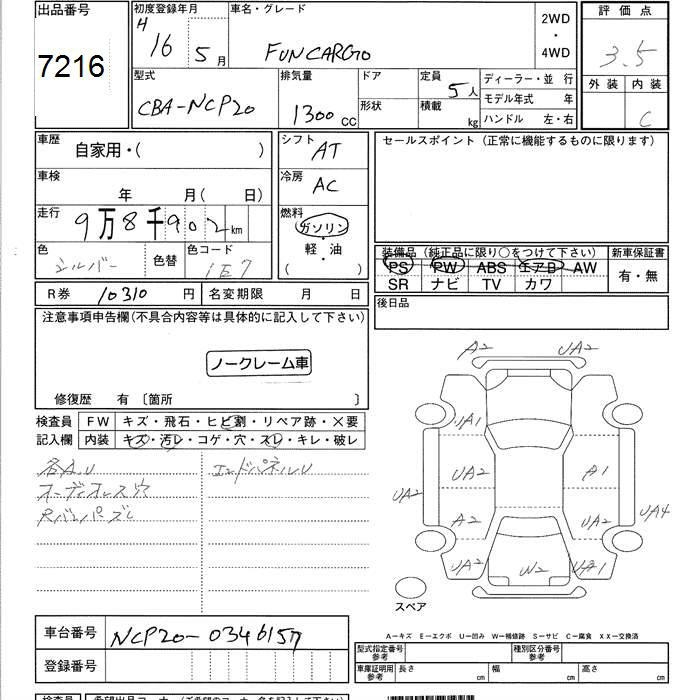 出品番号
7216
初度登録年月
H 16 5月
車名・グレード
FUNCARGO
2WD
・
4WD
評価点
3.5
外装 内装
C
型式
CBA-NCP20
排気量
1300 cc
ドア
形状
定員
5人
積載
kg
ディーラー・並 行
モデル年式 年
ハンドル 左・右
車歴
自家用・( )
車検
年 月( 日)
走行
9万8千902km
色
シルバー
色替
色コード
1E7
シフト
AT
冷房
AC
燃料
ガソリン
軽・油
( )
セールスポイント (正常に機能するものに限ります)
装備品 (純正品に限り○をつけて下さい)
PS PW ABS エアB AW
SR ナビ TV カワ
新車保証書
有・無
後日品
R券 10310 円 名変期限 月 日
注意事項申告欄(不具合内容等は具体的に記入して下さい)
ノークレーム車
修復歴 有 〔箇所 〕
検査員
記入欄
FW キズ・飛石・ヒビ割・リペア跡・×要
内装 キズ・汚レ・コゲ・穴・スレ・キレ・破レ
各A.U
オーディオレス穴
エンドパネルU
A2 UA2
UA1
UA2 A1
UA2 UA4
A2 UA2
UA2 W2 UA1
スペア
A−キズ E−エクボ U−凹み W−補修跡 S−サビ C−腐食 XX−交換済
車台番号 NCP20-0346157
登録番号
型式指定番号
参考
種別区分番号
参考
車庫証明用
参考
長さ cm 幅 cm 高さ cm